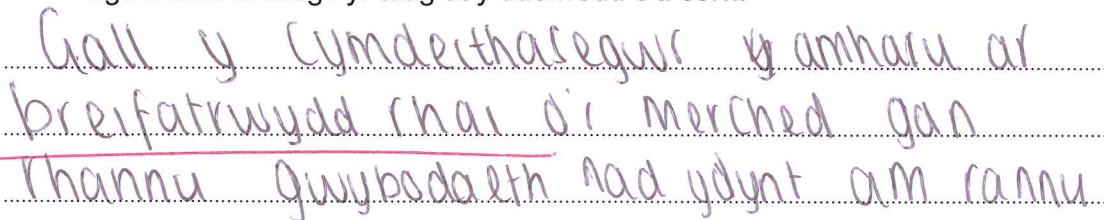 Gall y Cymdeithasegwr amharu ar
breifatrwydd rhai o'r merched gan
rhannu gwybodaeth nad ydynt am rannu